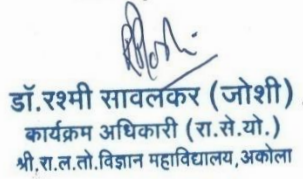 डॉ.रश्मी सावलकर (जोशी)
कार्यक्रम अधिकारी (रा.से.यो.)
श्री.रा.ल.तो.विज्ञान महाविद्यालय,अकोला